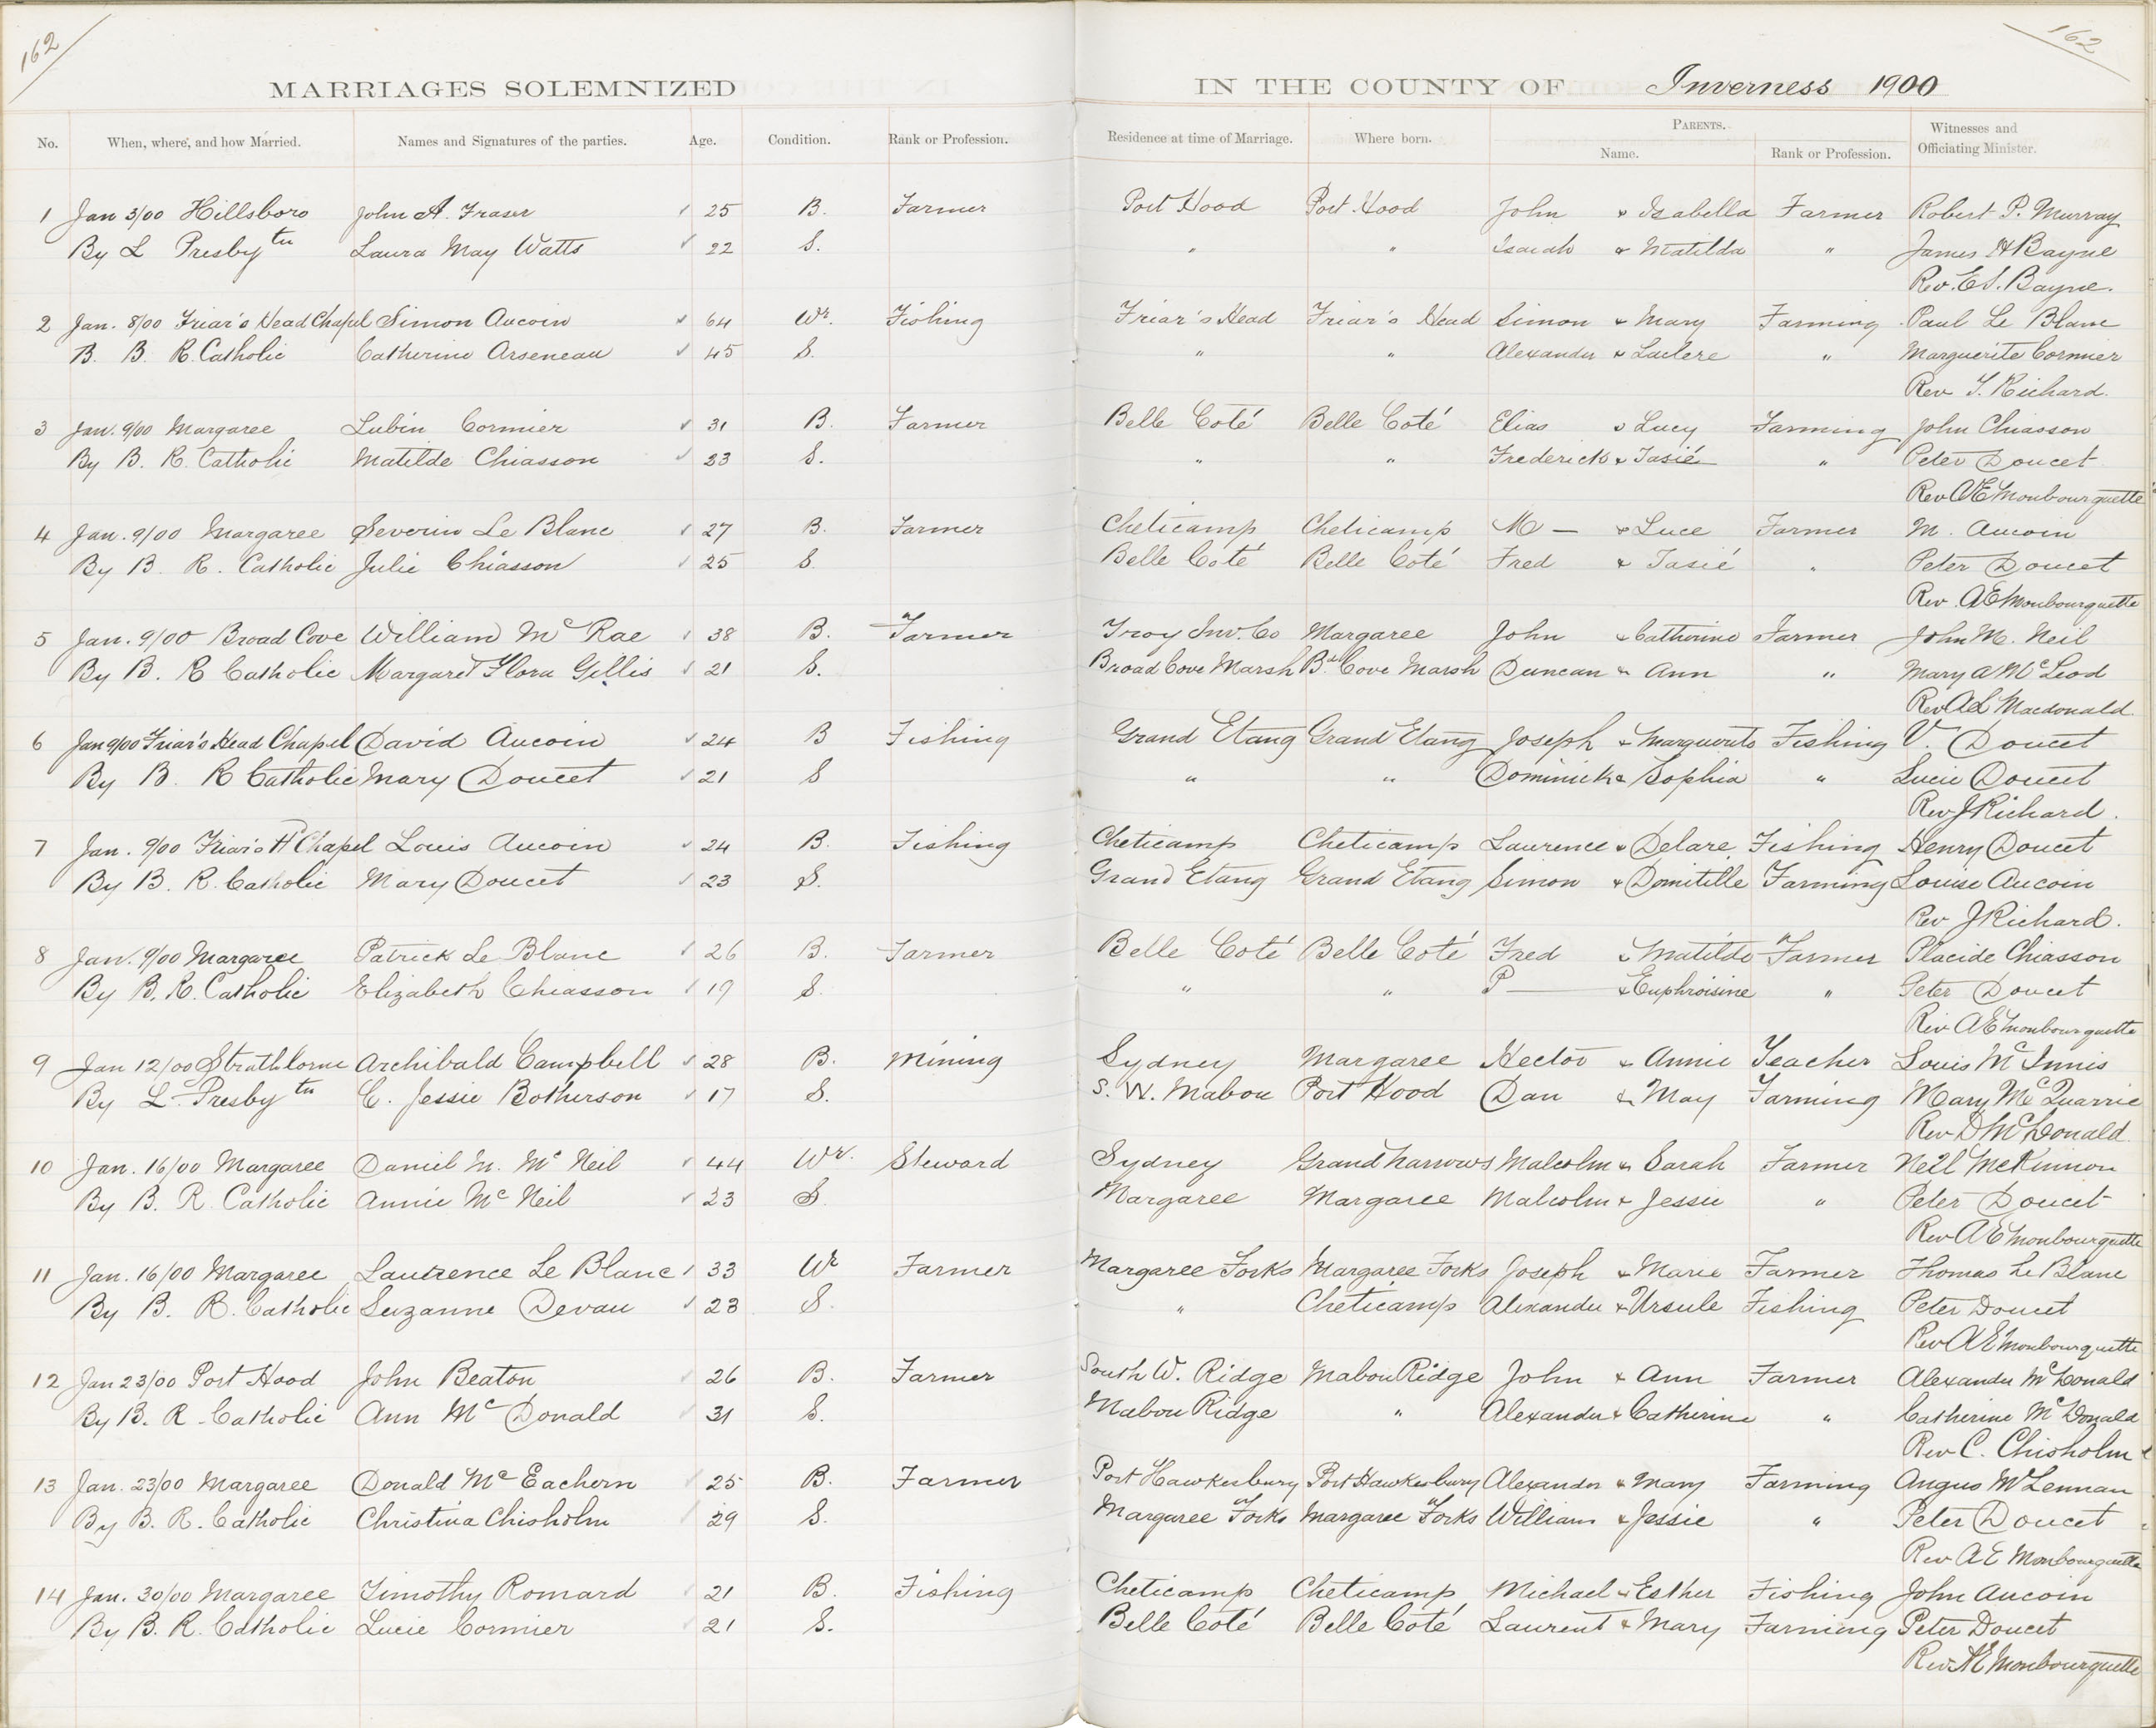 162
162
MARRIAGES SOLEMNIZED IN THE COUNTY OF Inverness 1900
No. When, where, and how Married. Names and Signatures of the parties. Age. Condition. Rank or Profession. Residence at time of Marriage. Where born. PARENTS. Name. Rank or Profession. Witnesses and Officiating Minister.
1 Jan 3/00 Hillsboro John A. Fraser 25 B. Farmer Port Hood Port Hood John & Isabella Farmer Robert P. Murray
By L Presbytn Laura May Watts 22 S. " " Isaiah & Matilda " James H Bayne
Rev. E S. Bayne.
2 Jan. 8/00 Friar's Head Chapel Simon Aucoin 64 Wr. Fishing Friar's Head Friar's Head Simon & Mary Farming Paul Le Blanc
B. B. R. Catholic Catherine Arseneau 45 S. " " Alexander & Laclere " Marguerite Cormier
Rev J. Richard.
3 Jan. 9/00 Margaree Lubin Cormier 31 B. Farmer Belle Coté Belle Coté Elias & Lucy Farming John Chiasson
By B. R. Catholic Matilde Chiasson 23 S. " " Frederick & Tasié " Peter Doucet
Rev A E Monbourquette
4 Jan. 9/00 Margaree Severin Le Blanc 27 B. Farmer Cheticamp Cheticamp M — & Luce Farmer M. Aucoin
By B. R. Catholic Julie Chiasson 25 S. Belle Coté Belle Coté Fred & Tasié " Peter Doucet
Rev. A E Monbourquette
5 Jan. 9/00 Broad Cove William Mc Rae 38 B. Farmer Troy Inv. Co Margaree John & Catherine Farmer John M. Neil
By B. R Catholic Margaret Flora Gillis 21 S. Broad Cove Marsh Bd Cove Marsh Duncan & Ann " Mary A McLeod
Rev A L Macdonald
6 Jan 9/00 Friar's Head Chapel David Aucoin 24 B Fishing Grand Etang Grand Etang Joseph & Marguerite Fishing V. Doucet
By B. R Catholic Mary Doucet 21 S " " Dominick & Sophia " Lucie Doucet
Rev J Richard.
7 Jan. 9/00 Friar's Hd Chapel Louis Aucoin 24 B. Fishing Cheticamp Cheticamp Laurence & Delare Fishing Henry Doucet
By B. R. Catholic Mary Doucet 23 S. Grand Etang Grand Etang Simon & Domitille Farming Louise Aucoin
Rev J Richard.
8 Jan. 9/00 Margaree Patrick Le Blanc 26 B. Farmer Belle Coté Belle Coté Fred & Matilde Farmer Placide Chiasson
By B. R. Catholic Elizabeth Chiasson 19 S. " " P — & Euphroisine " Peter Doucet
Rev A E Monbourquette
9 Jan 12/00 Strathlorne Archibald Campbell 28 B. Mining Sydney Margaree Hector & Annie Teacher Louis McInnis
By L. Presbytn C. Jessie Botherson 17 S. S. W. Mabou Port Hood Dan & May Farming Mary McQuarrie
Rev D McDonald
10 Jan. 16/00 Margaree Daniel M. Mc Neil 44 Wr. Steward Sydney Grand Narrows Malcolm & Sarah Farmer Neil McKinnon
By B. R. Catholic Annie Mc Neil 23 S. Margaree Margaree Malcolm & Jessie " Peter Doucet
Rev A E Monbourquette
11 Jan. 16/00 Margaree Lawrence Le Blanc 33 Wr Farmer Margaree Forks Margaree Forks Joseph & Marie Farmer Thomas Le Blanc
By B. R. Catholic Suzanne Devau 23 S. " Cheticamp Alexander & Ursule Fishing Peter Doucet
Rev A E Monbourquette
12 Jan 23/00 Port Hood John Beaton 26 B. Farmer South W. Ridge Mabou Ridge John & Ann Farmer Alexander McDonald
By B. R. Catholic Ann McDonald 31 S. Mabou Ridge " Alexander & Catherine " Catherine McDonald
Rev C. Chisholm
13 Jan. 23/00 Margaree Donald Mc Eachern 25 B. Farmer Port Hawkesbury Port Hawkesbury Alexander & Mary Farming Angus McLennan
By B. R. Catholic Christina Chisholm 29 S. Margaree Forks Margaree Forks William & Jessie " Peter Doucet
Rev A E Monbourquette
14 Jan. 30/00 Margaree Timothy Romard 21 B. Fishing Cheticamp Cheticamp Michael & Esther Fishing John Aucoin
By B. R. Catholic Lucie Cormier 21 S. Belle Coté Belle Coté Laurent & Mary Farming Peter Doucet
Rev. A E Monbourquette